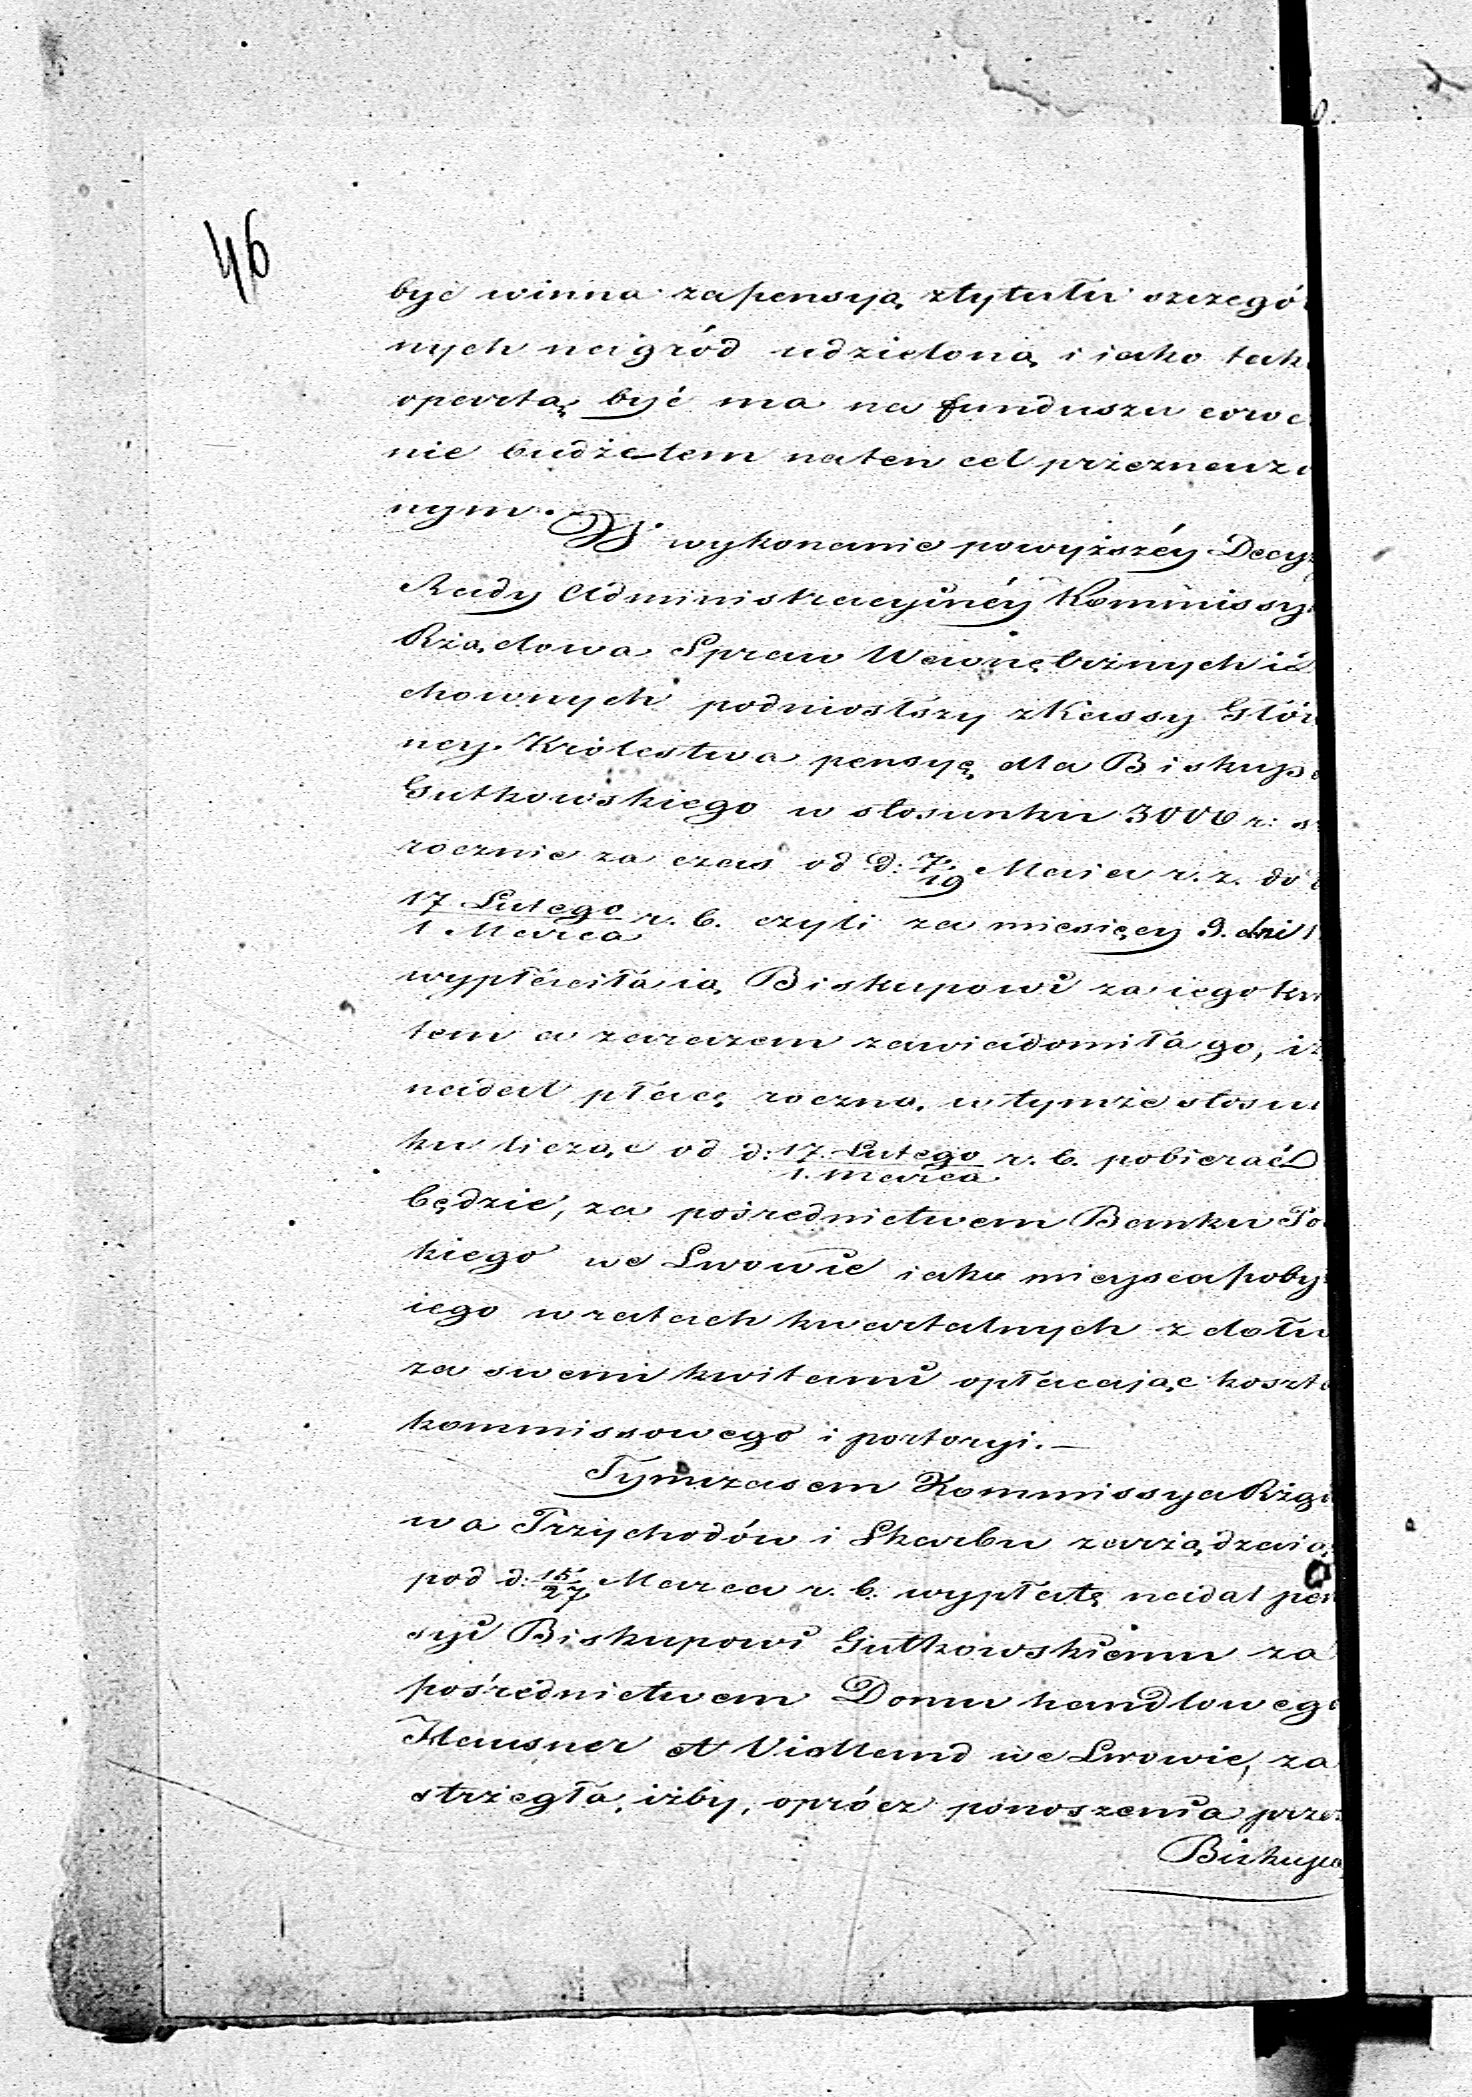 46
być winna za pensyą z tytułu szczegó
nych nagród udzieloną i iako tak
opartą być ma na funduszu
nie budżetem na ten cel przeznaczo
nym.
W wykonanie powyższéy Decyz
Rady Administracyinéy Kommissy
Rządowa Spraw Wewnętrznych i D
chownych podniosłszy z Kassy Głów
ney Królestwa pensyę dla Biskupa
Gutkowskiego w stosunku 3000 r: s
rocznie za czas od d: 7/19 Maia r. z. do
17 Lutego/1 Marca r. b. czyli za miesięcy 9. dni 1
wypłaciła ią Biskupowi za iego kwi
tem a zarazem zawiadomiła go, iż
nadal płacę roczną w tymże stosun
ku licząc od d: 17. Lutego/1. Marca r. b. pobierać
będzie, za pośrednictwem Banku Po
kiego we Lwowie iako mieysca poby
iego w ratach kwartalnych z dołu
za swemi kwitami opłacaiąc koszta
kommissowego i portoryi.—
Tymczasem Kommissya Rzą
wa Przychodów i Skarbu zarządzaią
pod d: 15/27 Marca r. b. wypłatę nadal pen
syi Biskupowi Gutkowskiemu za
pośrednictwem Domu handlowego
Hausner et Violland we Lwowie, za
strzegła, iżby, oprócz ponoszenia przez
Biskupa